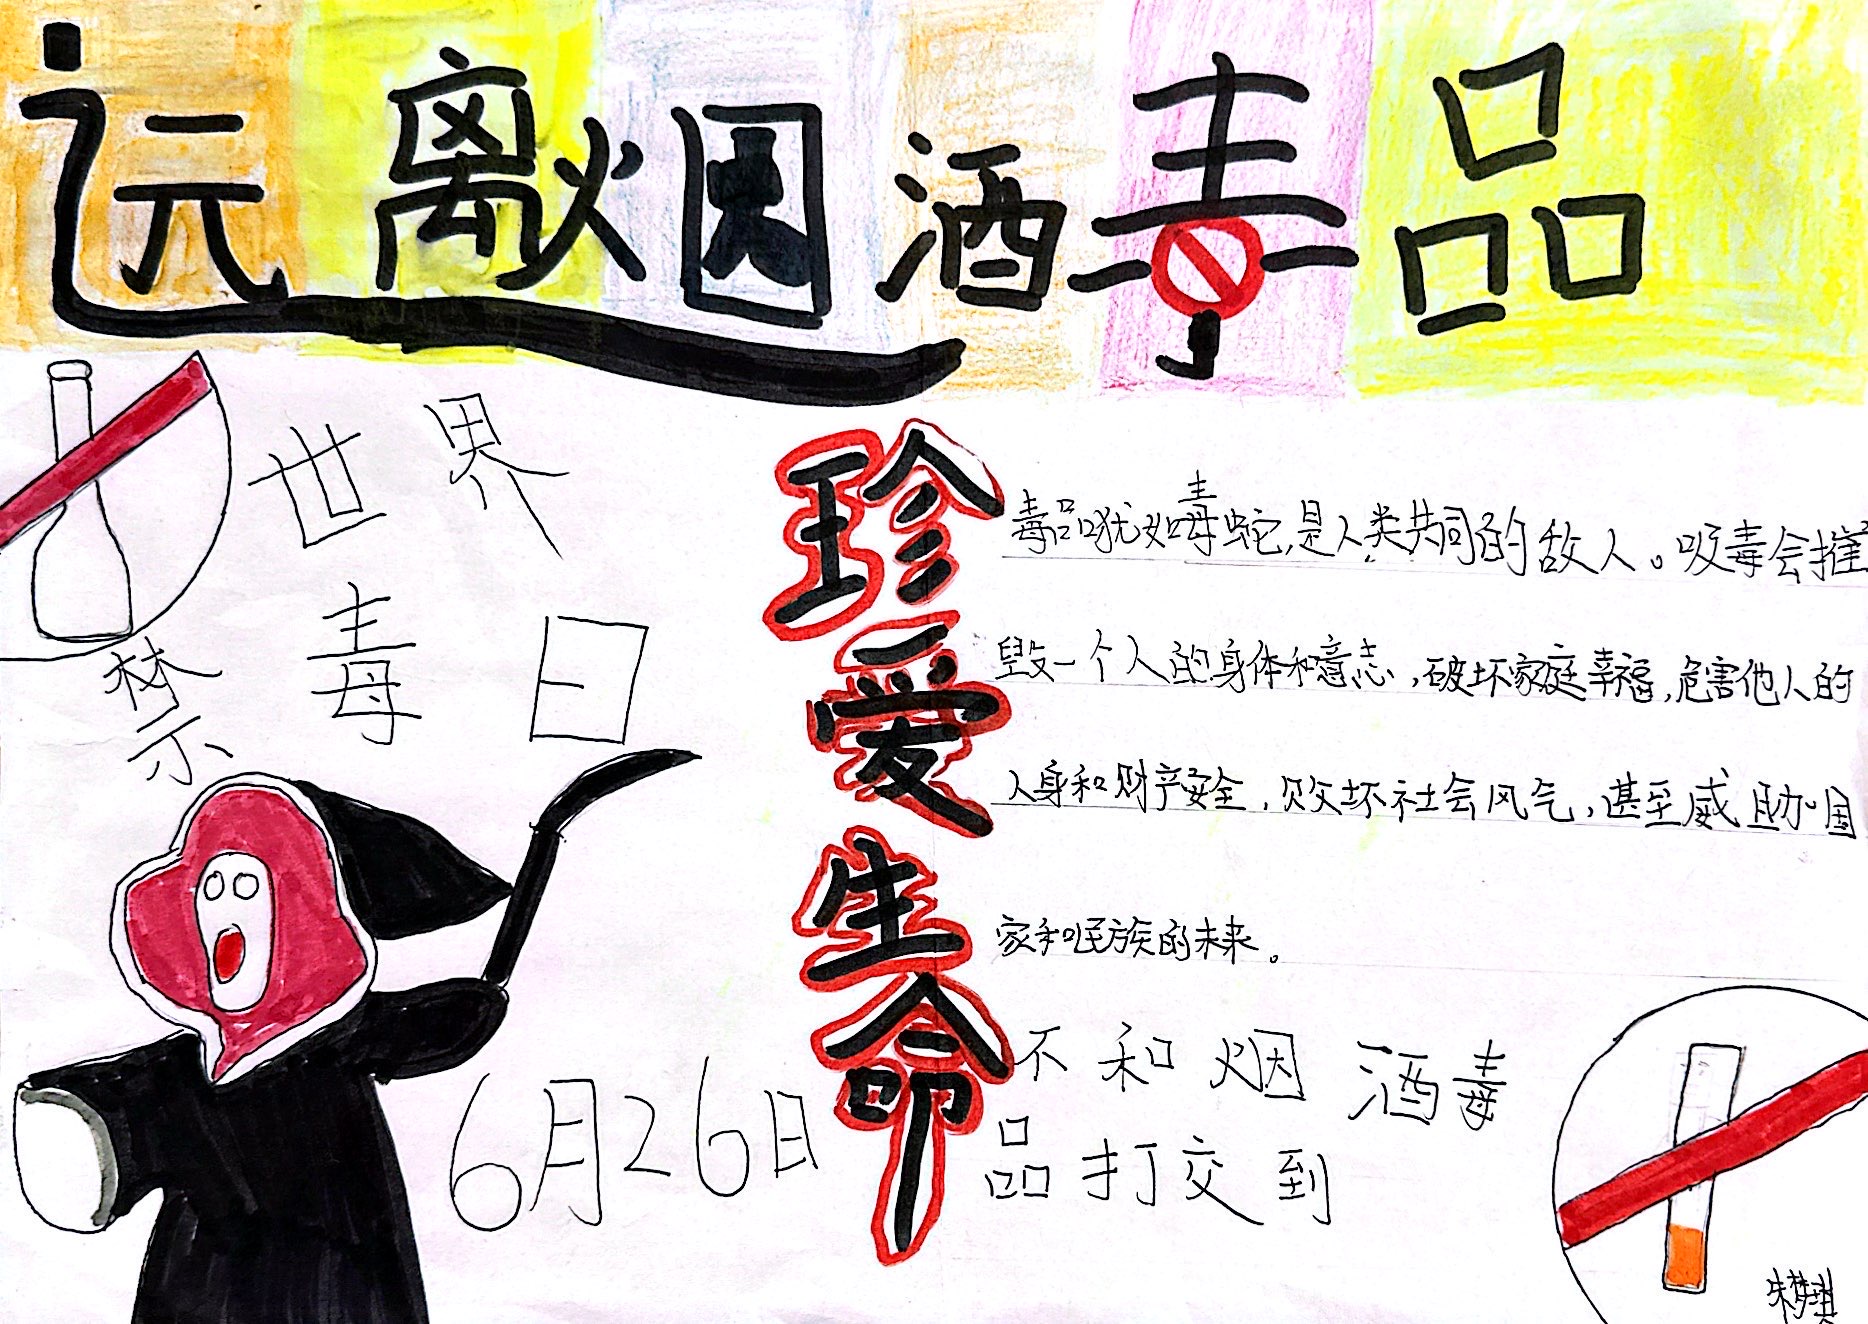 远离烟酒毒品
世界
禁毒日
珍爱生命
毒品犹如毒蛇,是人类共同的敌人。吸毒会摧
毁一个人的身体和意志,破坏家庭幸福,危害他人的
人身和财产安全,败坏社会风气,甚至威助国
家和民族的未来。
不和烟酒毒
品打交到
6月26日